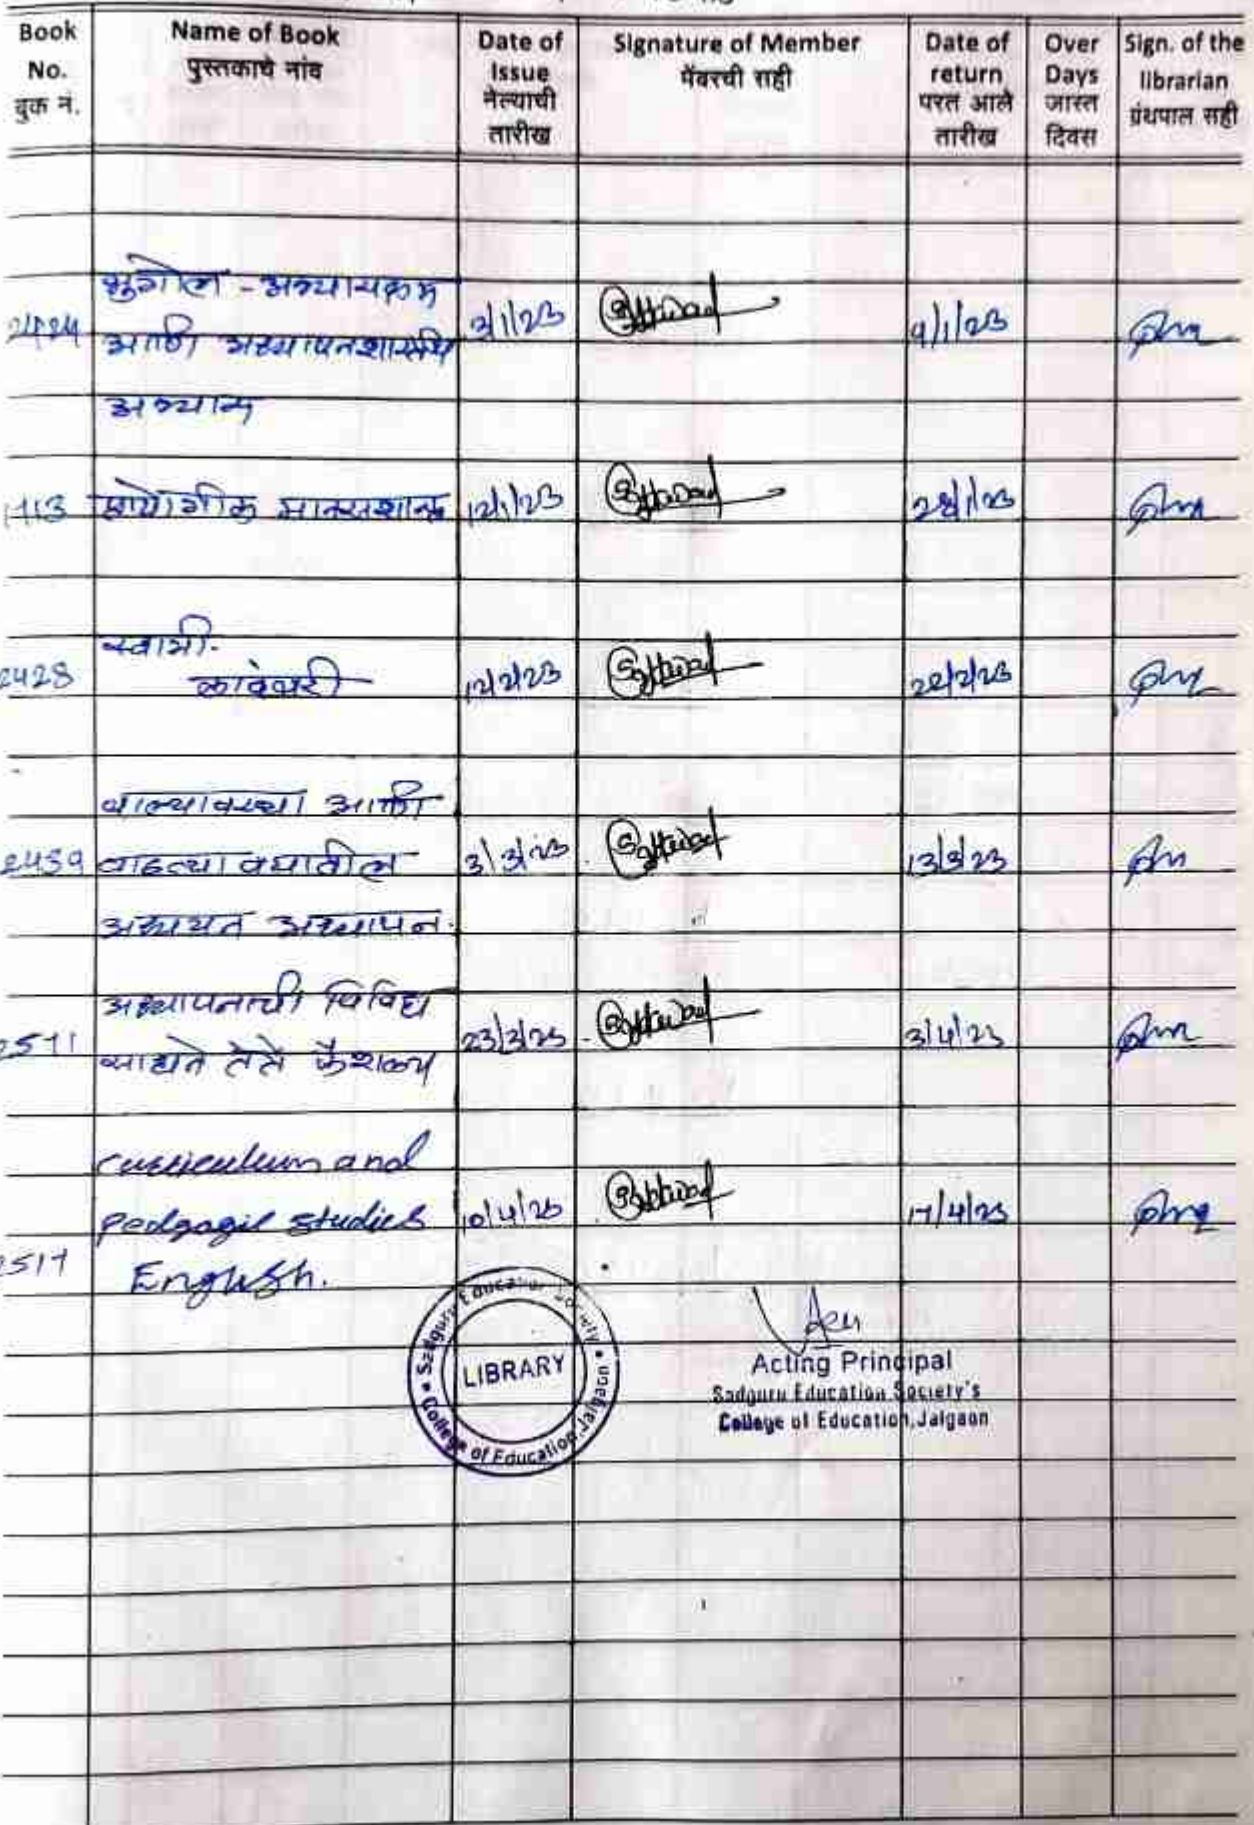 Book No. बुक नं. Name of Book पुस्तकाचे नांव Date of Issue नेल्याची तारीख Signature of Member मेंबरची सही Date of return परत आले तारीख Over Days जास्त दिवस Sign. of the librarian ग्रंथपाल सही
भुगोल - अभ्यासक्रम
2/1/23 9/1/23
आणि अध्यापनशास्त्रीय
अभ्यास
1713 प्रायोगीक मानसशास्त्र 12/1/23 28/1/23
स्वामी.
2428 कादंबरी 12/2/23 22/2/23
बाल्यावस्था आणी
2439 वाढत्या वयातील 3/3/23 13/3/23
अध्ययन अध्यापन.
अध्यापनाची विविध
2511 23/3/23 3/4/23
साधने तंत्रे कौशल्य
curriculum and
pedgagil studies 10/4/23 17/4/23
2517 English.
Sadguru Education Society's
LIBRARY
College of Education, Jalgaon
Acting Principal
Sadguru Education Society's
College of Education, Jalgaon